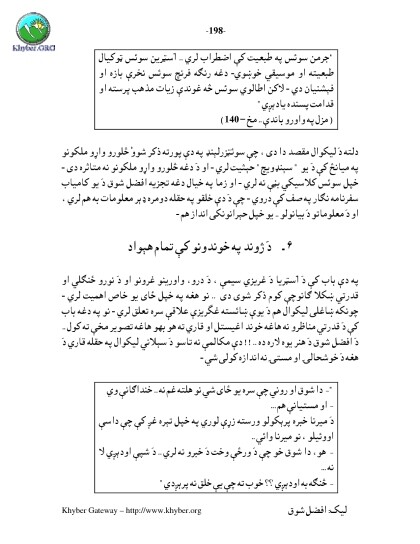 -198-
Khyber.ORG
"جرمن سوئس په طبعیت کې اضطراب لري .. آسټرین سوئس ټوکیال
طبعیته او موسیقي خوښوي- دغه رنګه فرنچ سوئس نخرې بازه او
فېشنیان دي - لاکن اطالوي سوئس څه غوندې زیات مذهب پرسته او
قدامت پسنده یادېږي"
( مزل په واورو باندې.. مخ – 140 )
دلته دَ لیکوال مقصد دا دی ، چې سوئټزرلېنډ په دې پورته ذکر شوو څلورو واړو ملکونو
په میانځ کې دَ یو " سېنډویچ" حیثیت لري - او دَ دغه څلورو واړو ملکونو نه متاثره دی -
خپل سوئس کلاسیکي بڼې نه لري - او زما په خیال دغه تجزیه افضل شوق دَ یو کامیاب
سفرنامه نګار په صف کې دروي - چې دَ دې خلقو په حقله دومره ډېر معلومات به هم لري ،
او دَ معلوماتو دَ بیانولو .. یو خپل حېرانونکی انداز هم -
۶ - دَ ژوند په خوندونو کې تمام هېواد
په دې باب کې دَ آسټریا دَ غریزې سیمې ، دَ درو، واورینو غرونو او دَ نورو ځنګلي او
قدرتي ښکلا ګانو چې کوم ذکر شوی دی .. نو هغه په خپل ځای یو خاص اهمیت لري -
چونکه ښاغلی لیکوال هم دَ یوې ښائسته غګریزې علاقې سره تعلق لري - نو په دغه باب
کې دَ قدرتي مناظرو نه هاغه خوند اغیستل او قاري ته هو بهو هاغه تصویر مخې ته کول ..
دَ افضل شوق دَ هنر یوه لاره ده .. !! دې مکالمې نه تاسو دَ سبلاني لیکوال په حقله قاري دَ
هغه دَ خوشحالۍ او مستۍ نه اندازه کولی شي -
"- دا شوق او روني چې سره یو ځای شي نو هلته غم نه .. خندا ګانې وي
- او مستیانې هم...
دَ میرنا خبره پرېکولو ورسته زړې لوري په خپل تېره غږ کې چې داسې
اووئیلو ، نو میرنا واتې..
- هو، دا شوق خو چې دَ ورځې وخت دَ خبرو نه لري.. دَ شپې اودېږي لا
نه...
- څنګه به اودېږي ؟؟ خوب ته چې یې خلق نه پرېږدي "
لیک: افضل شوق
Khyber Gateway – http://www.khyber.org